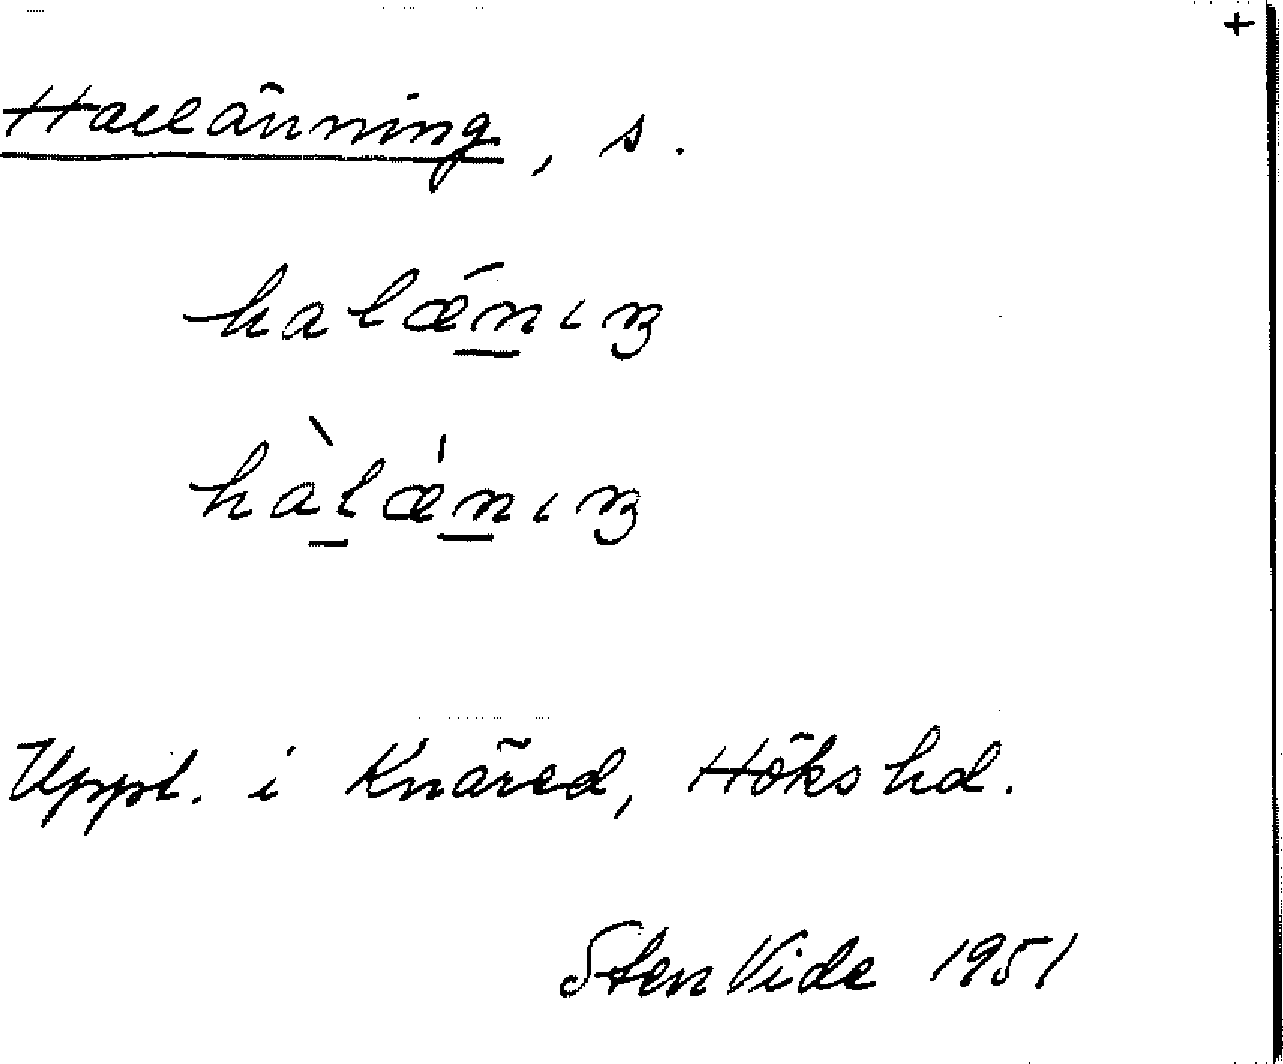 +
Hallänning, s.
halǽn̲ıŋ
hàl̲æ̍n̲ıŋ
Uppt. i Knäred, Höks hd.
Sten Vide 1951